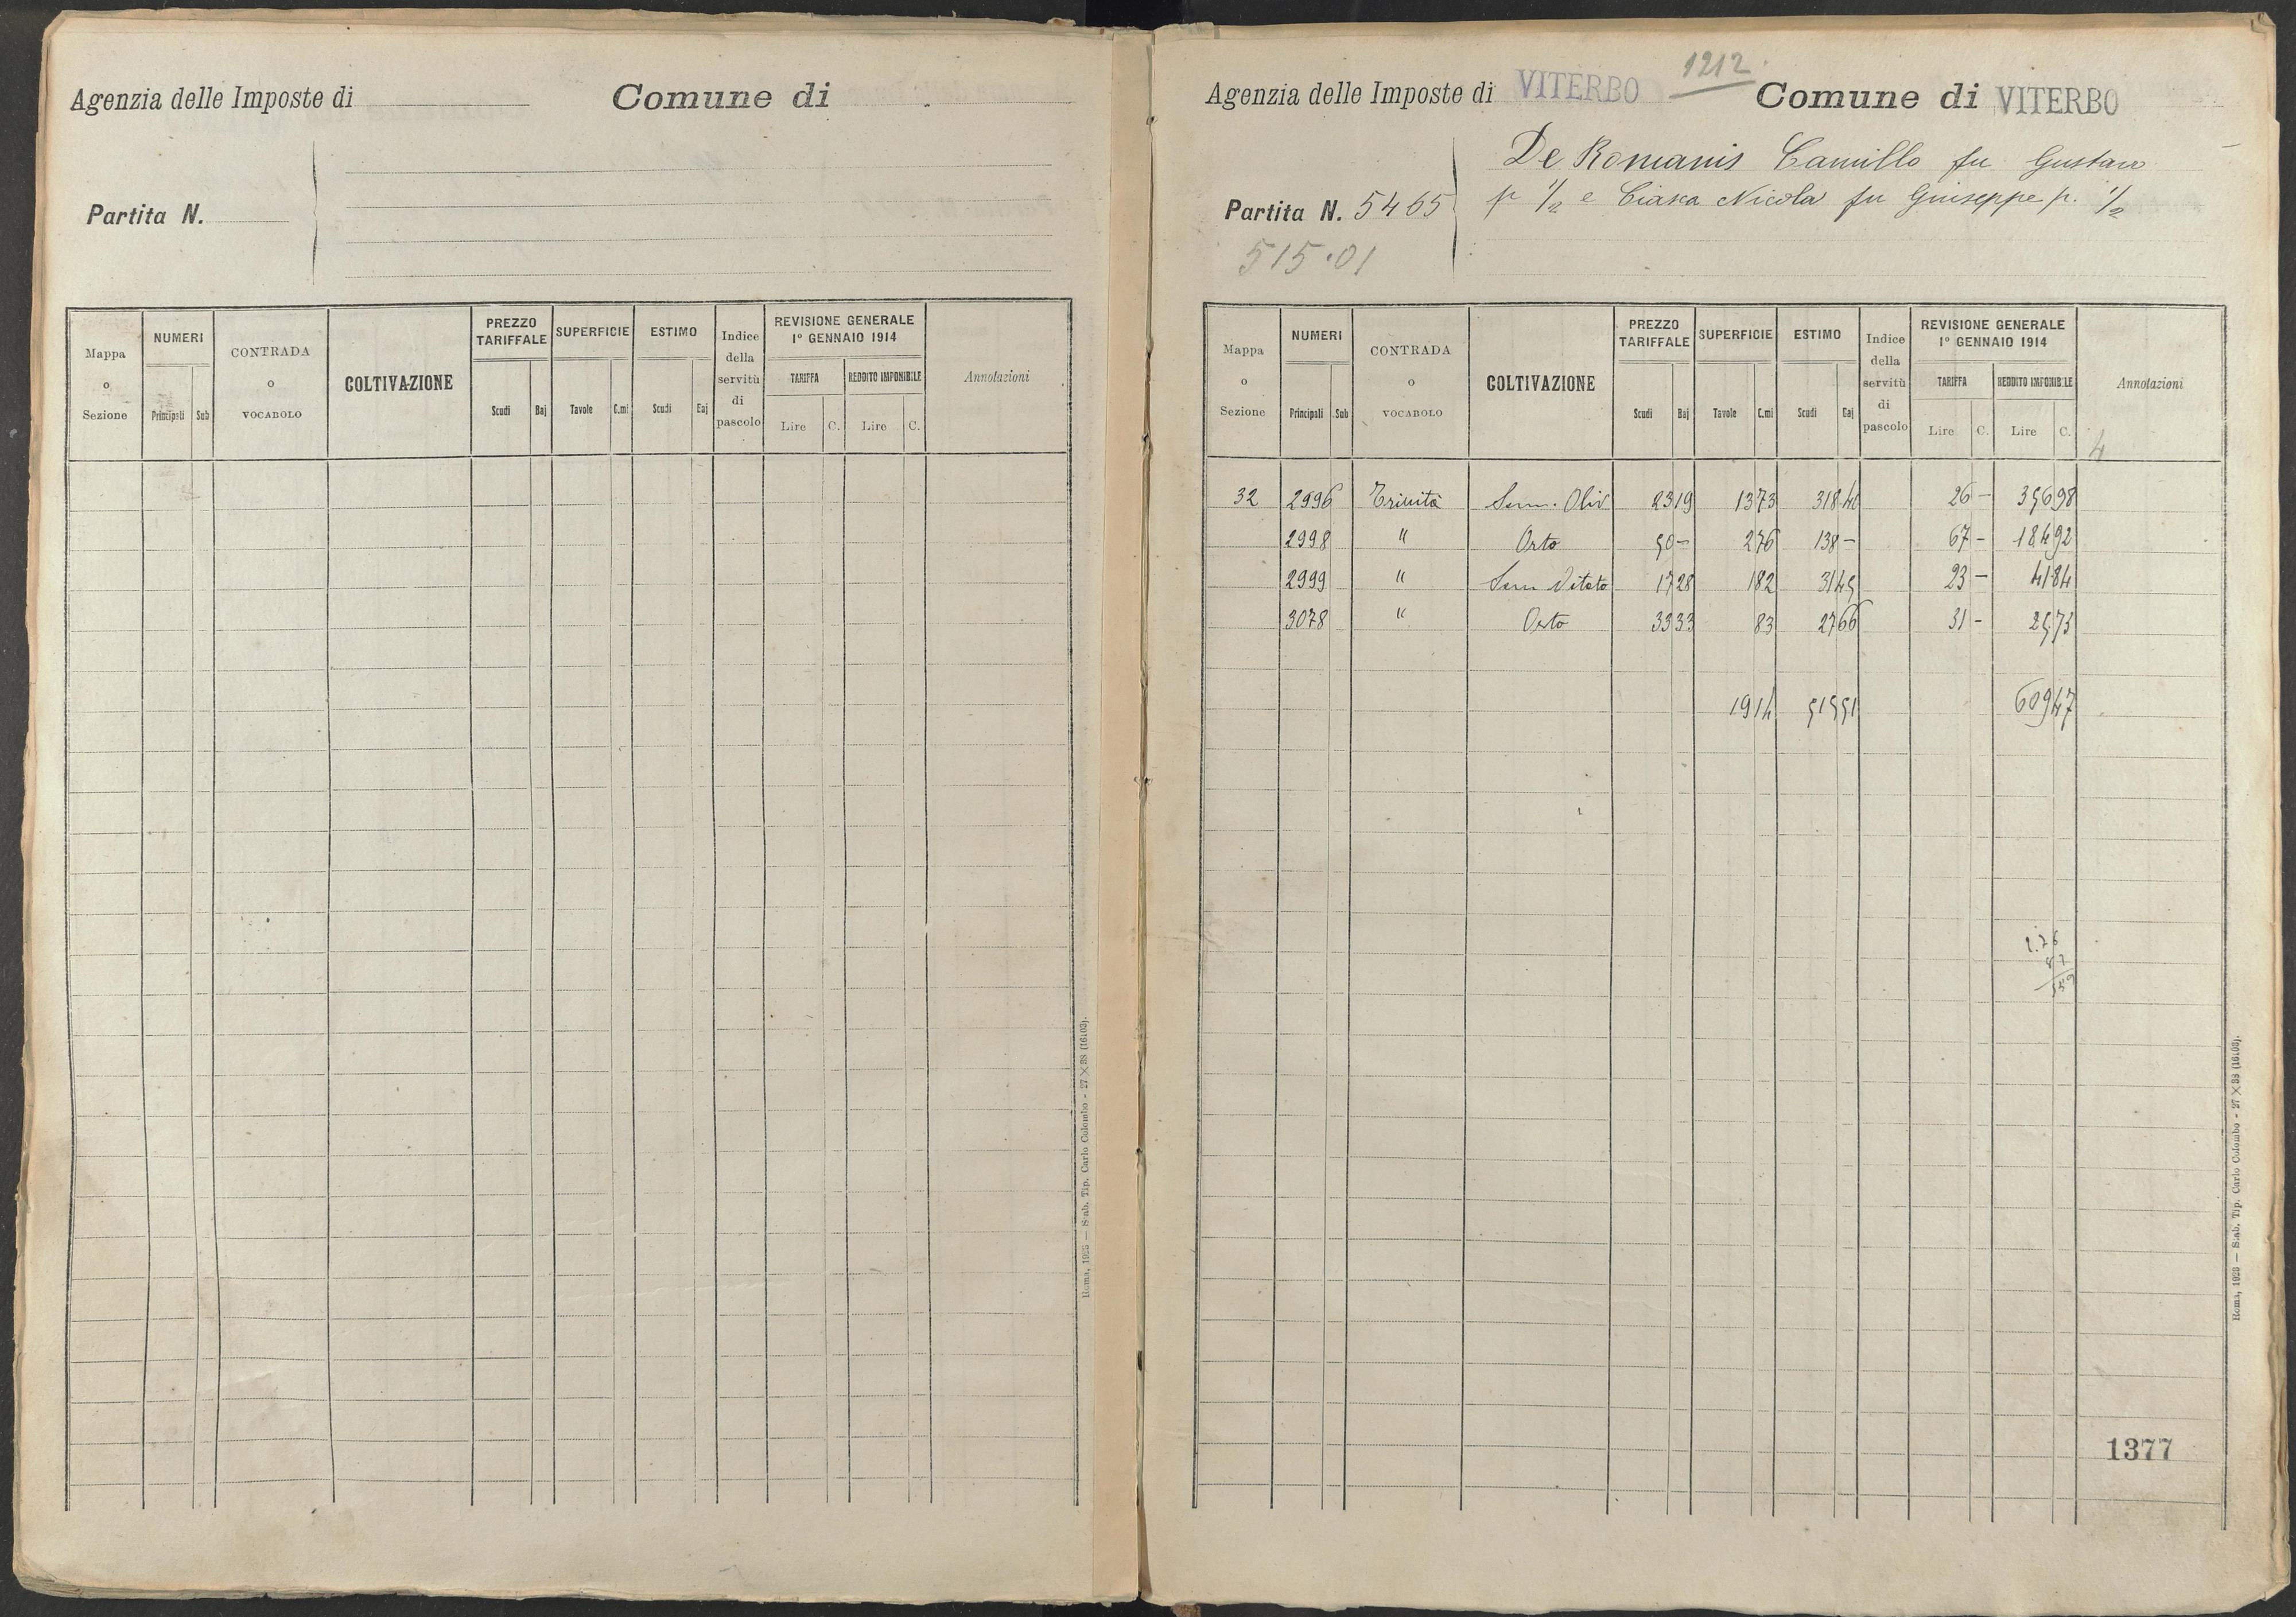 Agenzia delle Imposte di
Comune di
Partita N.
Mappa o Sezione
NUMERI
Principali Sub
CONTRADA o VOCABOLO
COLTIVAZIONE
PREZZO TARIFFALE
Scudi Baj
SUPERFICIE
Tavole C.mi
ESTIMO
Scudi Baj
Indice della servitù di pascolo
REVISIONE GENERALE 1º GENNAIO 1914
TARIFFA
Lire C.
REDDITO IMPONIBILE
Lire C.
Annotazioni
Roma, 1923 — Stab. Tip. Carlo Colombo - 27 × 38 (16103).
Agenzia delle Imposte di VITERBO
1212
Comune di VITERBO
Partita N. 5465
515.01
De Romanis Camillo fu Gustavo
p 1/2 e Ciasca Nicola fu Giuseppe p. 1/2
Mappa o Sezione
NUMERI
Principali Sub
CONTRADA o VOCABOLO
COLTIVAZIONE
PREZZO TARIFFALE
Scudi Baj
SUPERFICIE
Tavole C.mi
ESTIMO
Scudi Baj
Indice della servitù di pascolo
REVISIONE GENERALE 1º GENNAIO 1914
TARIFFA
Lire C.
REDDITO IMPONIBILE
Lire C.
Annotazioni
4
32 2996 Trinità Sem. Oliv. 23 19 13 73 318 40 26 - 356 98
2998 " Orto 50 - 2 76 138 - 67 - 184 92
2999 " Sem Vitato 17 28 1 82 31 45 23 - 41 84
3078 " Orto 33 33 83 27 66 31 - 25 73
19 14 515 51 609 47
1377
Roma, 1923 — Stab. Tip. Carlo Colombo - 27 × 38 (16103).